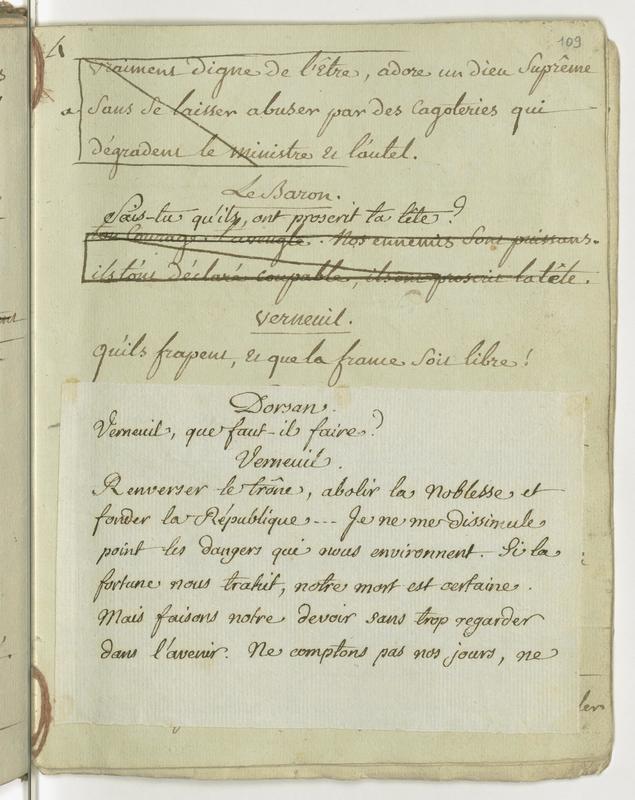 109
vraiment digne de l'Être, adore un dieu Suprême
a Sans Se laisser abuser par des Cagoteries qui
dégradent le ministre et l'autel.
Le Baron.
Sais-tu qu'ils, ont proscrit ta tête ?
ton Courage t'aveugle. Nos ennemis Sont puissans.
ils t'ont déclaré coupable, ils ont proscrit ta tête.
Verneuil.
Qu'ils frapent, et que la france Soit libre !
Dorsan.
Verneuil, que faut-il faire ?
Verneuil.
Renverser le trône, abolir la Noblesse et
fonder la République --- Je ne me dissimule
point les dangers qui nous environnent. Si la
fortune nous trahit, notre mort est certaine.
Mais faisons notre devoir sans trop regarder
dans l'avenir. Ne comptons pas nos jours, ne